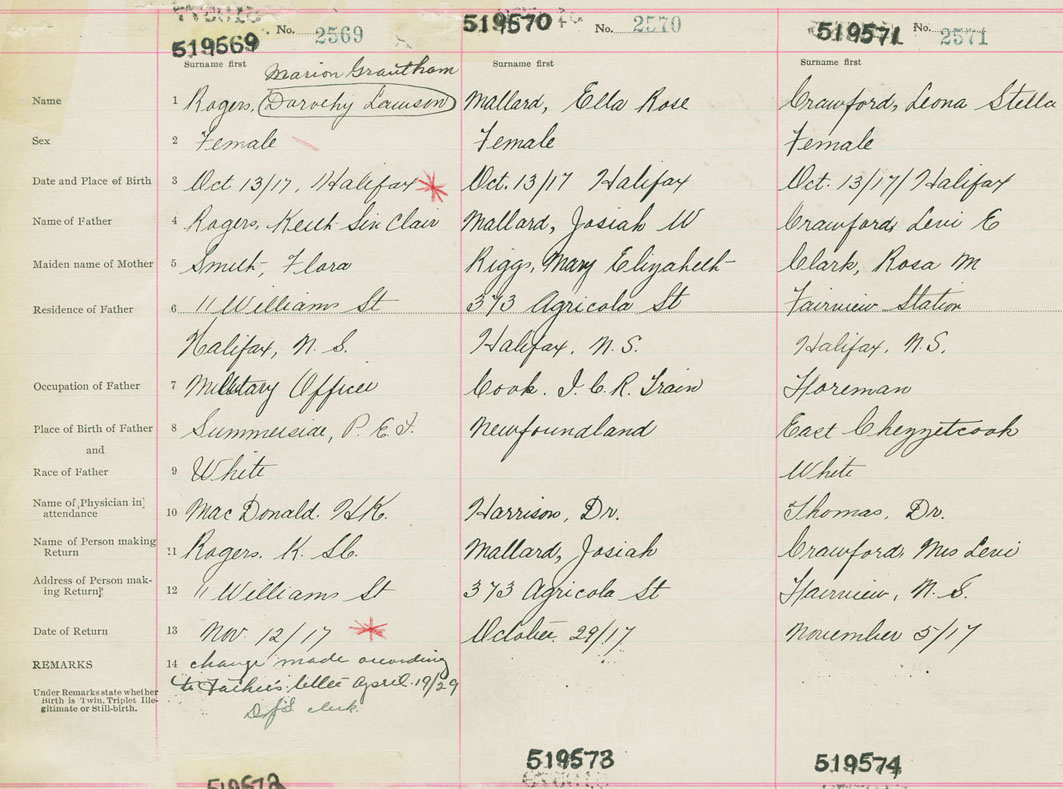 519569 No. 2569 519570 No. 2570 519571 No. 2571
Surname first Surname first Surname first
Marion Grantham
Name 1 Rogers, Dorothy Lawson Mallard, Ella Rose Crawford, Leona Stella
Sex 2 Female Female Female
Date and Place of Birth 3 Oct 13/17, Halifax Oct. 13/17 Halifax Oct. 13/17/ Halifax
Name of Father 4 Rogers, Keith Sin Clair Mallard, Josiah W Crawford, Levi E
Maiden name of Mother 5 Smith, Flora Riggs, Mary Elizabeth Clark, Rosa M
Residence of Father 6 11 Williams St 373 Agricola St Fairview Station
Halifax, N. S. Halifax, N.S. Halifax, N.S.
Occupation of Father 7 Military Officer Cook. I.C.R. Train Foreman
Place of Birth of Father 8 Summerside, P. E. I. Newfoundland East Chezzetcook
and
Race of Father 9 White White
Name of Physician in
attendance 10 Mac Donald. H.K. Harrison, Dr. Thomas, Dr.
Name of Person making
Return 11 Rogers. K. St.C. Mallard, Josiah Crawford, Mrs Levi
Address of Person mak-
ing Return 12 11 Williams St 373 Agricola St Fairview, N. S.
Date of Return 13 Nov. 12/17 October 29/17 November 5/17
REMARKS 14 change made according
to Father's letter April. 19/29
Under Remarks state whether
Birth is Twin, Triplet Ille-
gitimate or Still-birth.
clerk
519573 519574
519572